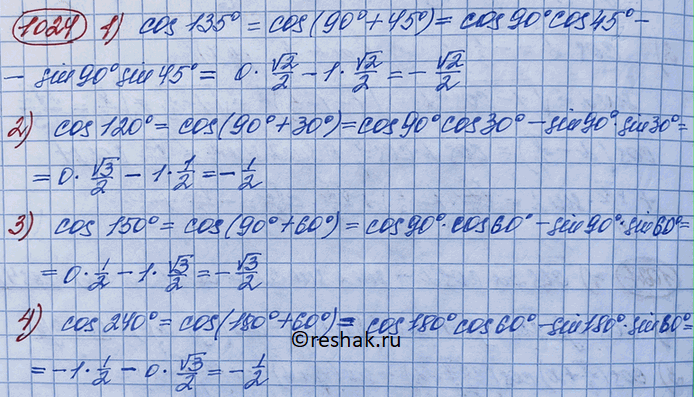 1024 1) cos 135° = cos(90° + 45°) = cos 90° cos 45° -
- sin 90° sin 45° = 0 · √2/2 - 1 · √2/2 = - √2/2
2) cos 120° = cos(90° + 30°) = cos 90° cos 30° - sin 90° · sin 30° =
= 0 · √3/2 - 1 · 1/2 = - 1/2
3) cos 150° = cos(90° + 60°) = cos 90° · cos 60° - sin 90° · sin 60° =
= 0 · 1/2 - 1 · √3/2 = - √3/2
4) cos 240° = cos(180° + 60°) = cos 180° cos 60° - sin 180° · sin 60° =
©reshak.ru
= -1 · 1/2 - 0 · √3/2 = - 1/2